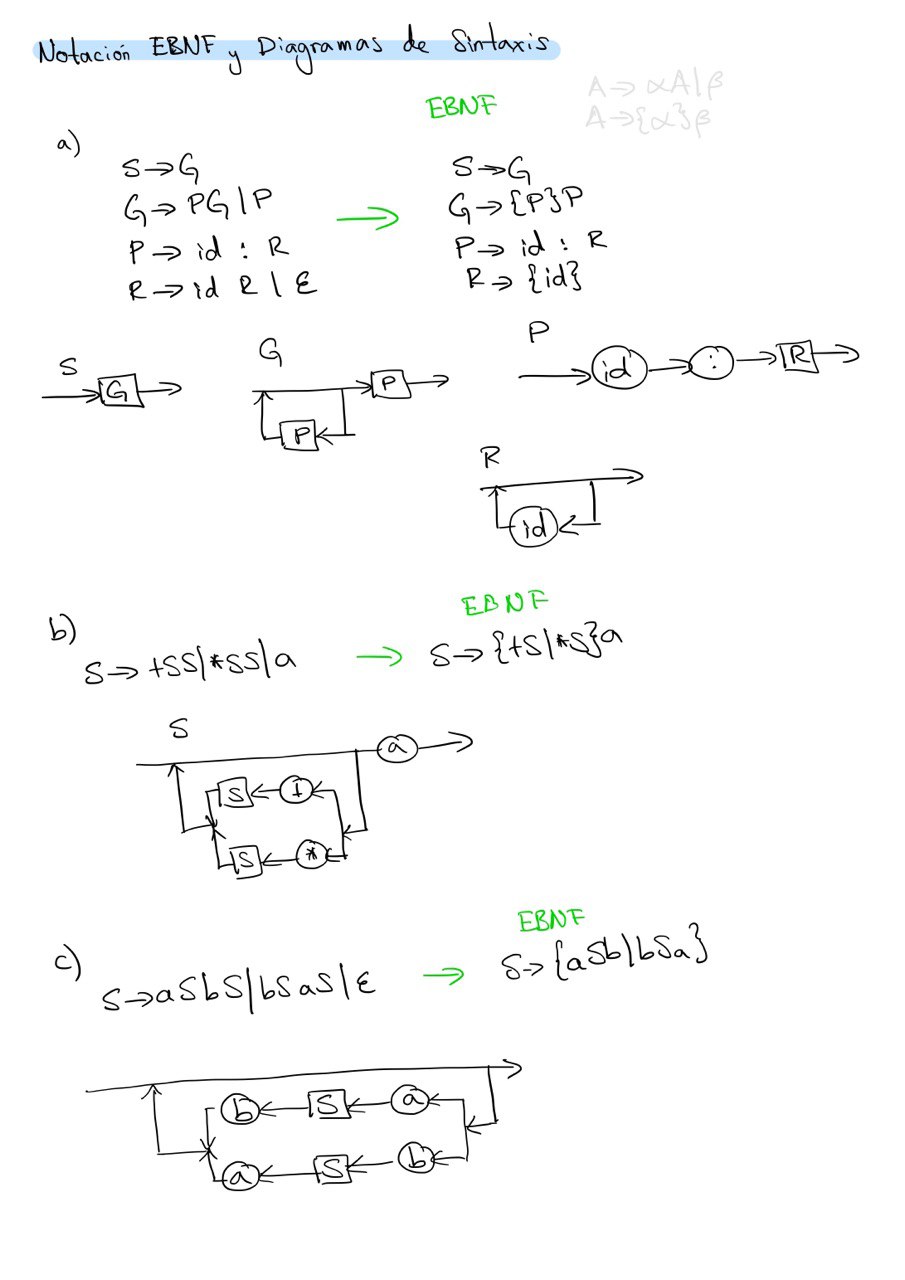 Notación EBNF y Diagramas de Sintaxis
A→αA|β
A→{α}β
EBNF
a)
S→G
G→PG|P
P→id : R
R→id R|ε
→
S→G
G→{P}P
P→id : R
R→{id}
S
G
G
P
P
P
id
:
R
R
id
EBNF
b)
S→+SS|*SS|a → S→{+S|*S}a
S
a
S +
S *
EBNF
c)
S→aSbS|bSaS|ε → S→{aSb|bSa}
b S a
a S b